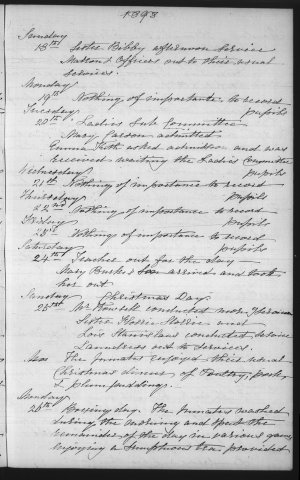 1898
Sunday
18th Sister Bibby afternoon service
Matron & Officers out to their usual
services.
Monday
19th Nothing of importance to record
Tuesday pupils
20th Ladies Sub Committee
Mary Carson admitted
Emma Frith asked admission and was
received waiting the Ladies Committee
Wednesday pupils
21st Nothing of importance to record
Thursday pupils
22nd Nothing of importance to record
Friday pupils
23rd Nothing of importance to record
Saturday pupils
24th Teacher out for the day
Mary Burke's Son arrived and took
her out
Sunday Christmas Day
25th Mr Housell conducted morn
Sister and
Lois conducted service
Laundress out to services.
The Inmates enjoyed their usual
Christmas dinner of Poultry, pork,
& plum puddings.
Monday
26th Boxing day. The Inmates washed
during the morning and spent the
remainder of the day in various games
enjoying a sumptuous tea provided